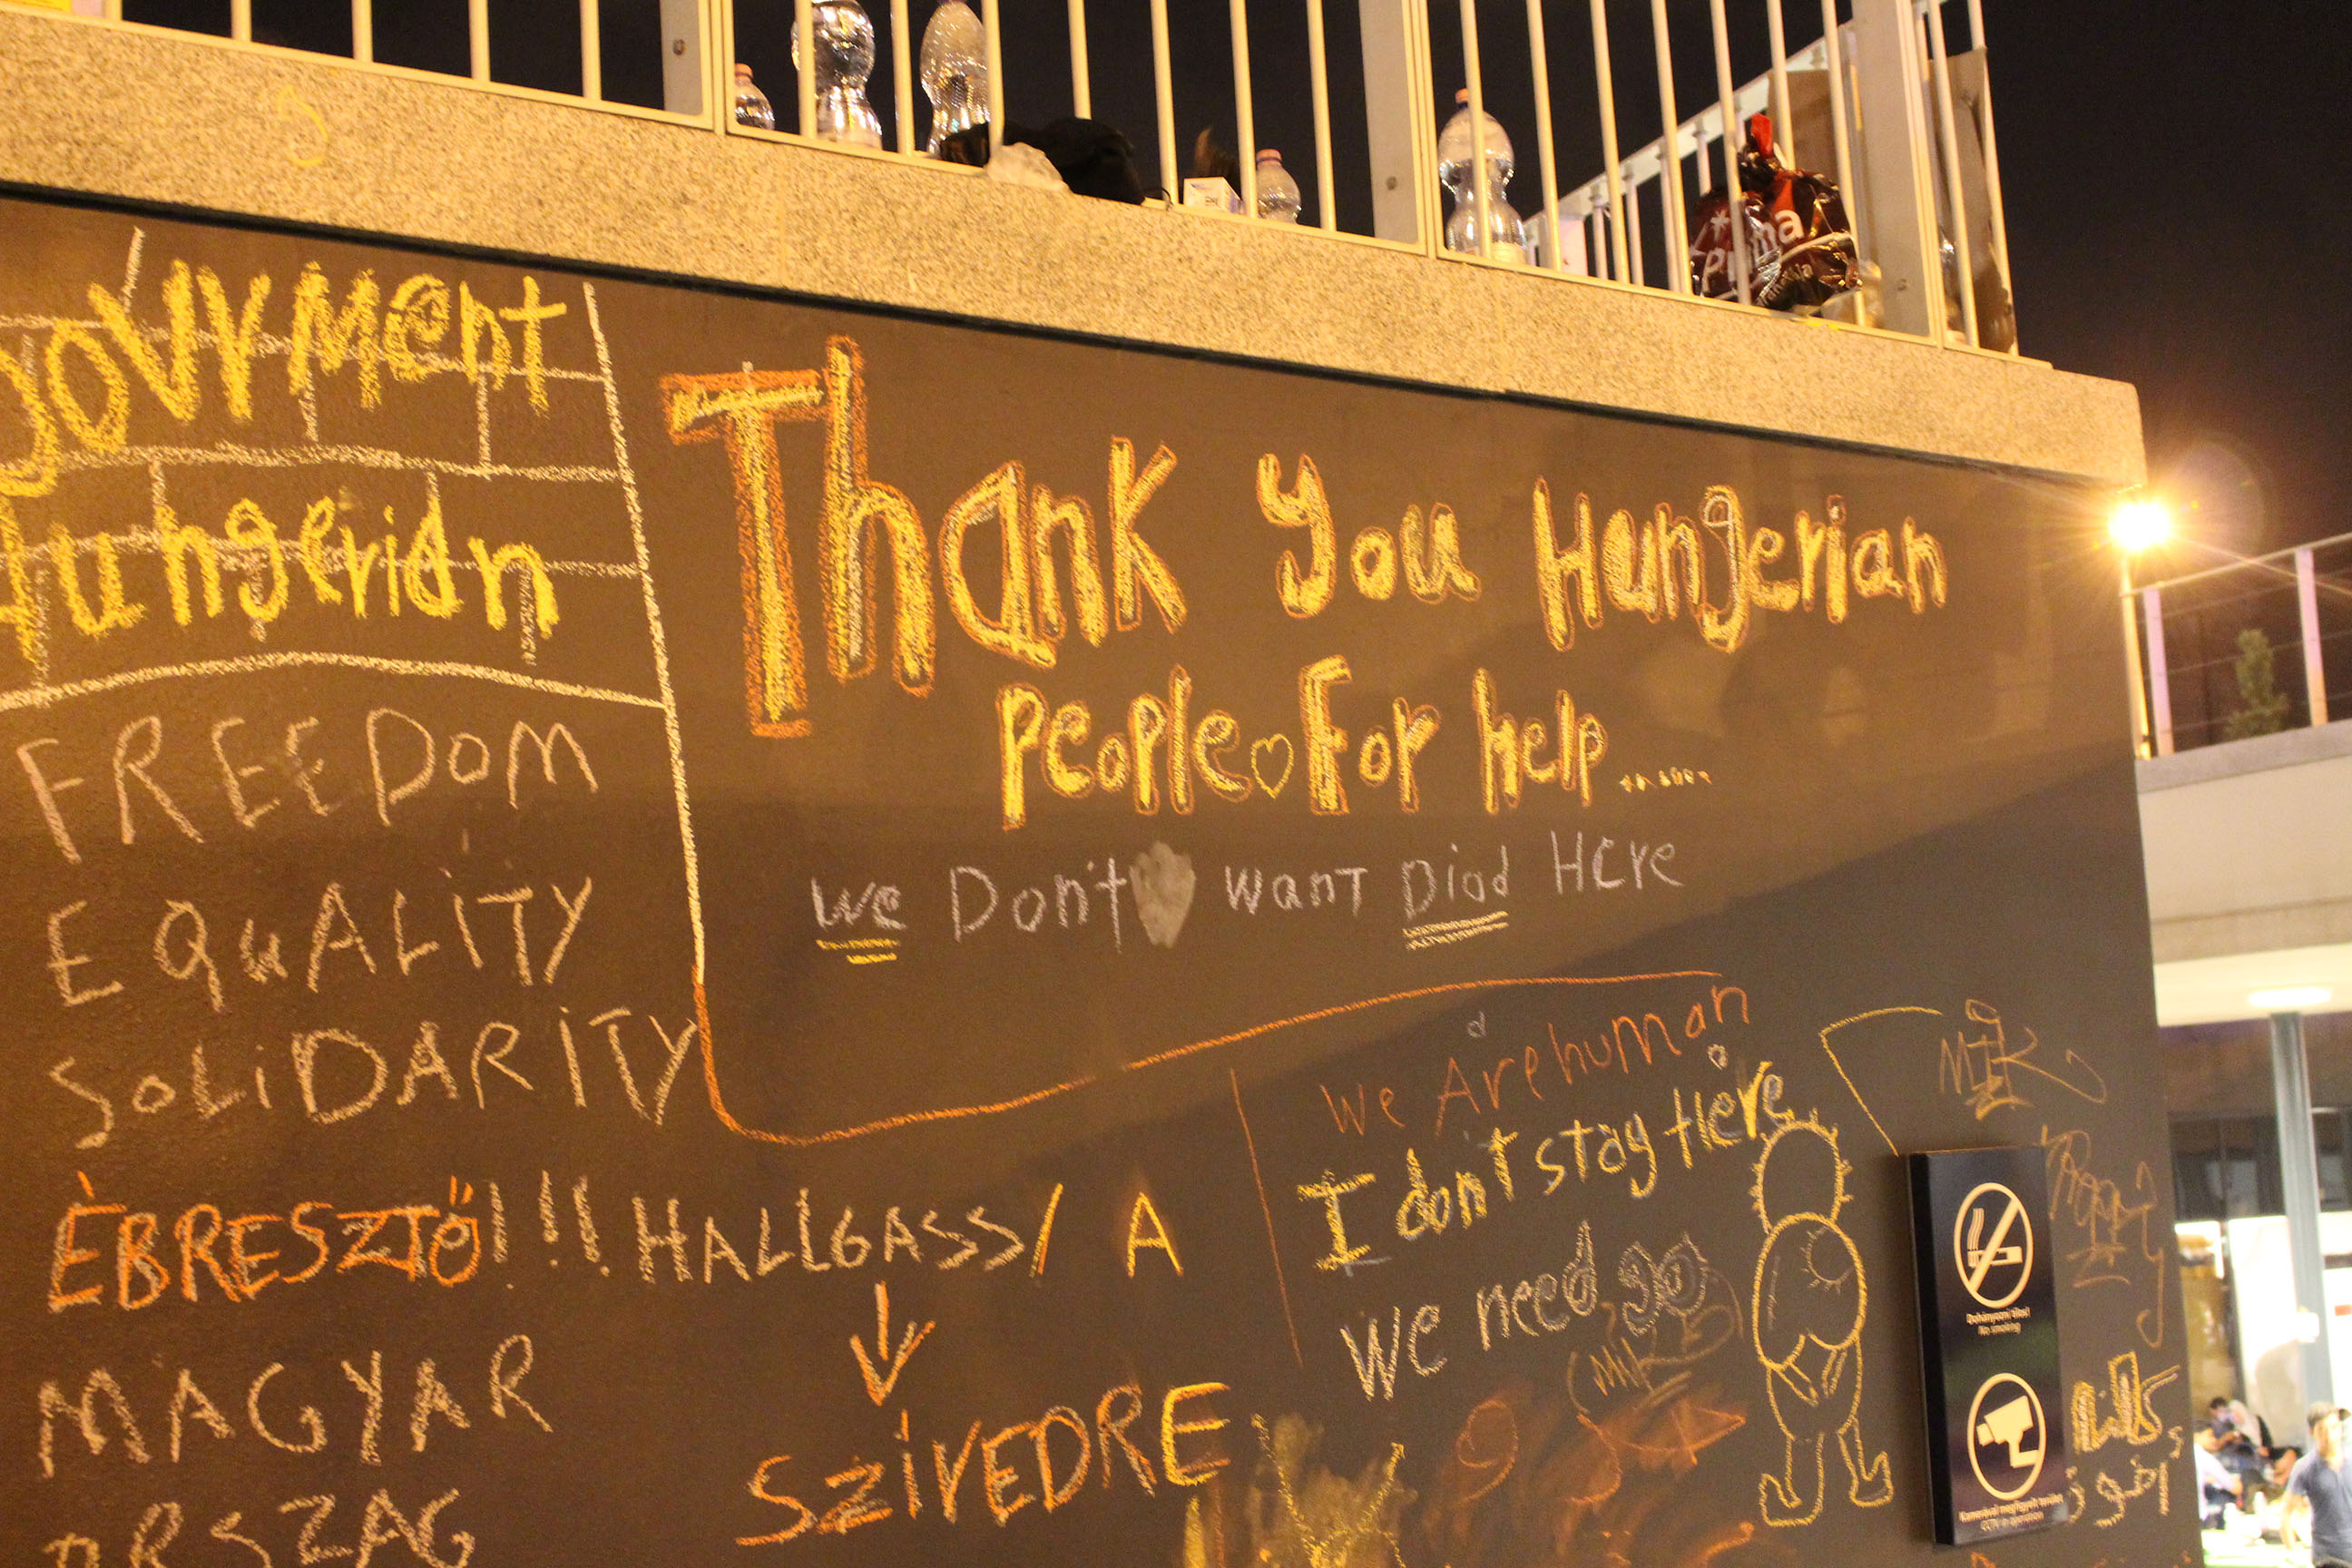 govrment
Hungerian
FREEDOM
EQuALiTY
SoLiDARiTY
ÉBRESZTŐ!!! HALLGASS/ A
SZÍVEDRE
MAGYAR
ORSZAG
Thank you Hungerian
People For help......
we Don't want Diod Here
We Are human
I don't stay Here
We need go
Prima
Dohányozni tilos!
No smoking
Kamerával megfigyelt terület
CCTV in operation